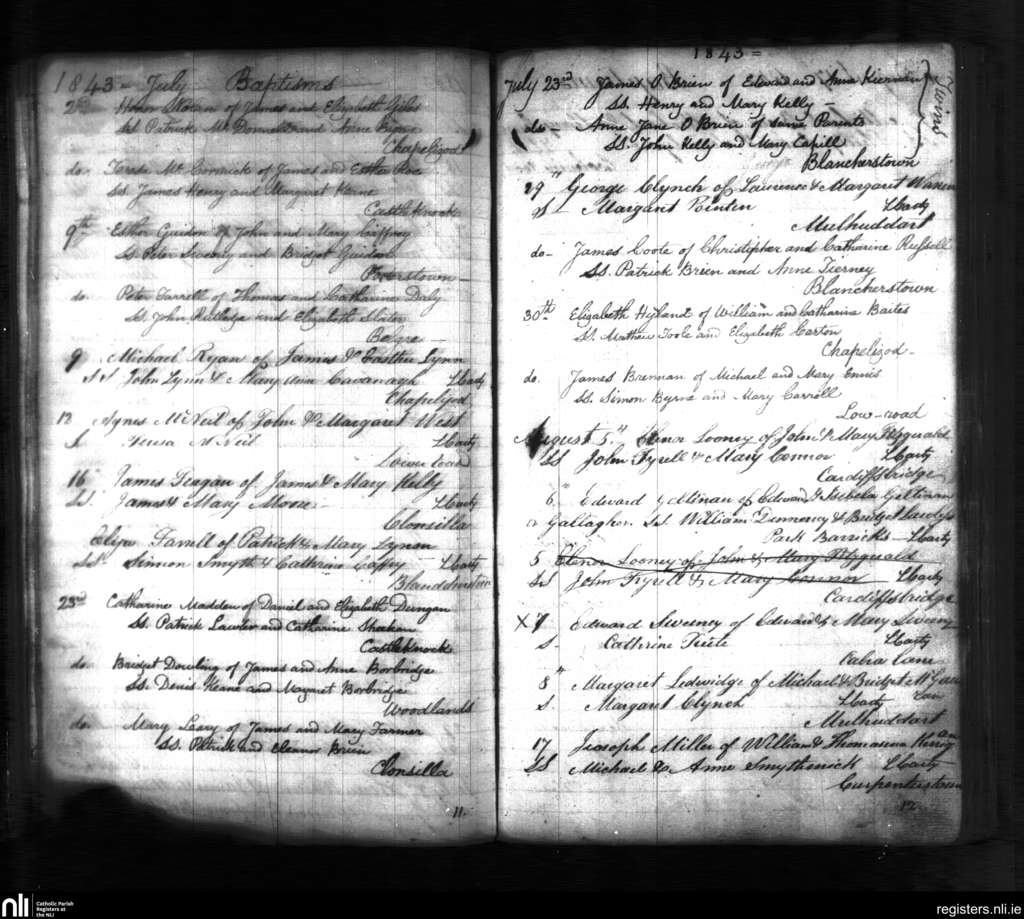 1843 = July Baptisms
2nd Honor Moran of James and Elizabeth Giles
Ss Patrick Mc Donnell and Anne
Chapelizod
do. Teresa Mc Cormick of James and Esther Roe
Ss James Henry and Margaret Kerne
Castleknock
9th Esther Guidon of John and Mary Caffrey
Ss Peter Sweeny and Bridget Guidon
Porterstown
do. Peter Farrell of Thomas and Catharine Daly
Ss John Rutledge and Elizabeth
9 Michael Ryan of James & Easther Lynn
SS John Lynn & Mary Ann Cavanagh
Chapelizod
12 Agnes McNeil of John & Margaret West
S Teresa McNeil
Lower road
16 James Teagan of James & Mary Kelly
Ss. James & Mary Moore
Clonsilla
Eliza Farrell of Patrick & Mary Lynon
Ss Simon Smyth & Cathrine Caffry
23rd Catharine Madden of Daniel and Elizabeth Dungan
Ss. Patrick Lawler and Catharine Sheehan
Castleknock
do. Bridget Dowling of James and Anne Borbridge
Ss. Denis Keane and Margaret Borbridge
Woodlands
do. Mary Leary of James and Mary Farmer
Ss. Patrick and Eleanor Brien
Clonsilla
11.
1843 =
July 23rd James O Brien of Edward and Anne Kiernan
Ss. Henry and Mary Kelly -
Twins
do - Anne Jane O Brien of same Parents
SS. John Kelly and Mary Cahill
Blancherstown
29" George Clynch of Laurence & Margaret Warren
S - Margaret Pointen
Mulhuddart
do - James Coote of Christopher and Catharine Russell
Ss. Patrick Brien and Anne Tierney
Blancherstown
30th Elizabeth Hyland of William and Catharine Baites
Ss. Matthew Toole and Elizabeth Carton
Chapelizod -
do. James Brennan of Michael and Mary Ennis
Ss. Simon Byrne and Mary Carroll
Low-road
August 5th Elenor Looney of John & Mary Fitzgerald
SS John Tyrell & Mary Connor
Cardiffsbridge
6" Edward of Edward & Isabela Gilliam
or Gallagher. Ss. William Dennency & Bridget
Park Barricks
5 Elenor Looney of John & Mary Fitzgerald
Ss John Tyrell & Mary Connor
Cardiffsbridge
X 7 Edward Sweeney of Edward & Mary Sweeny
S. Cathrine
Cabra Lane
8" Margaret Ledwidge of Michael & Bridget
S. Margaret Clynch
Mulhuddart
17 Jossoph Miller of William & Thomasena
SS Michael & Anne Smythenick
Curpenterstown
12
nli Catholic Parish
Registers at
the NLI
registers.nli.ie